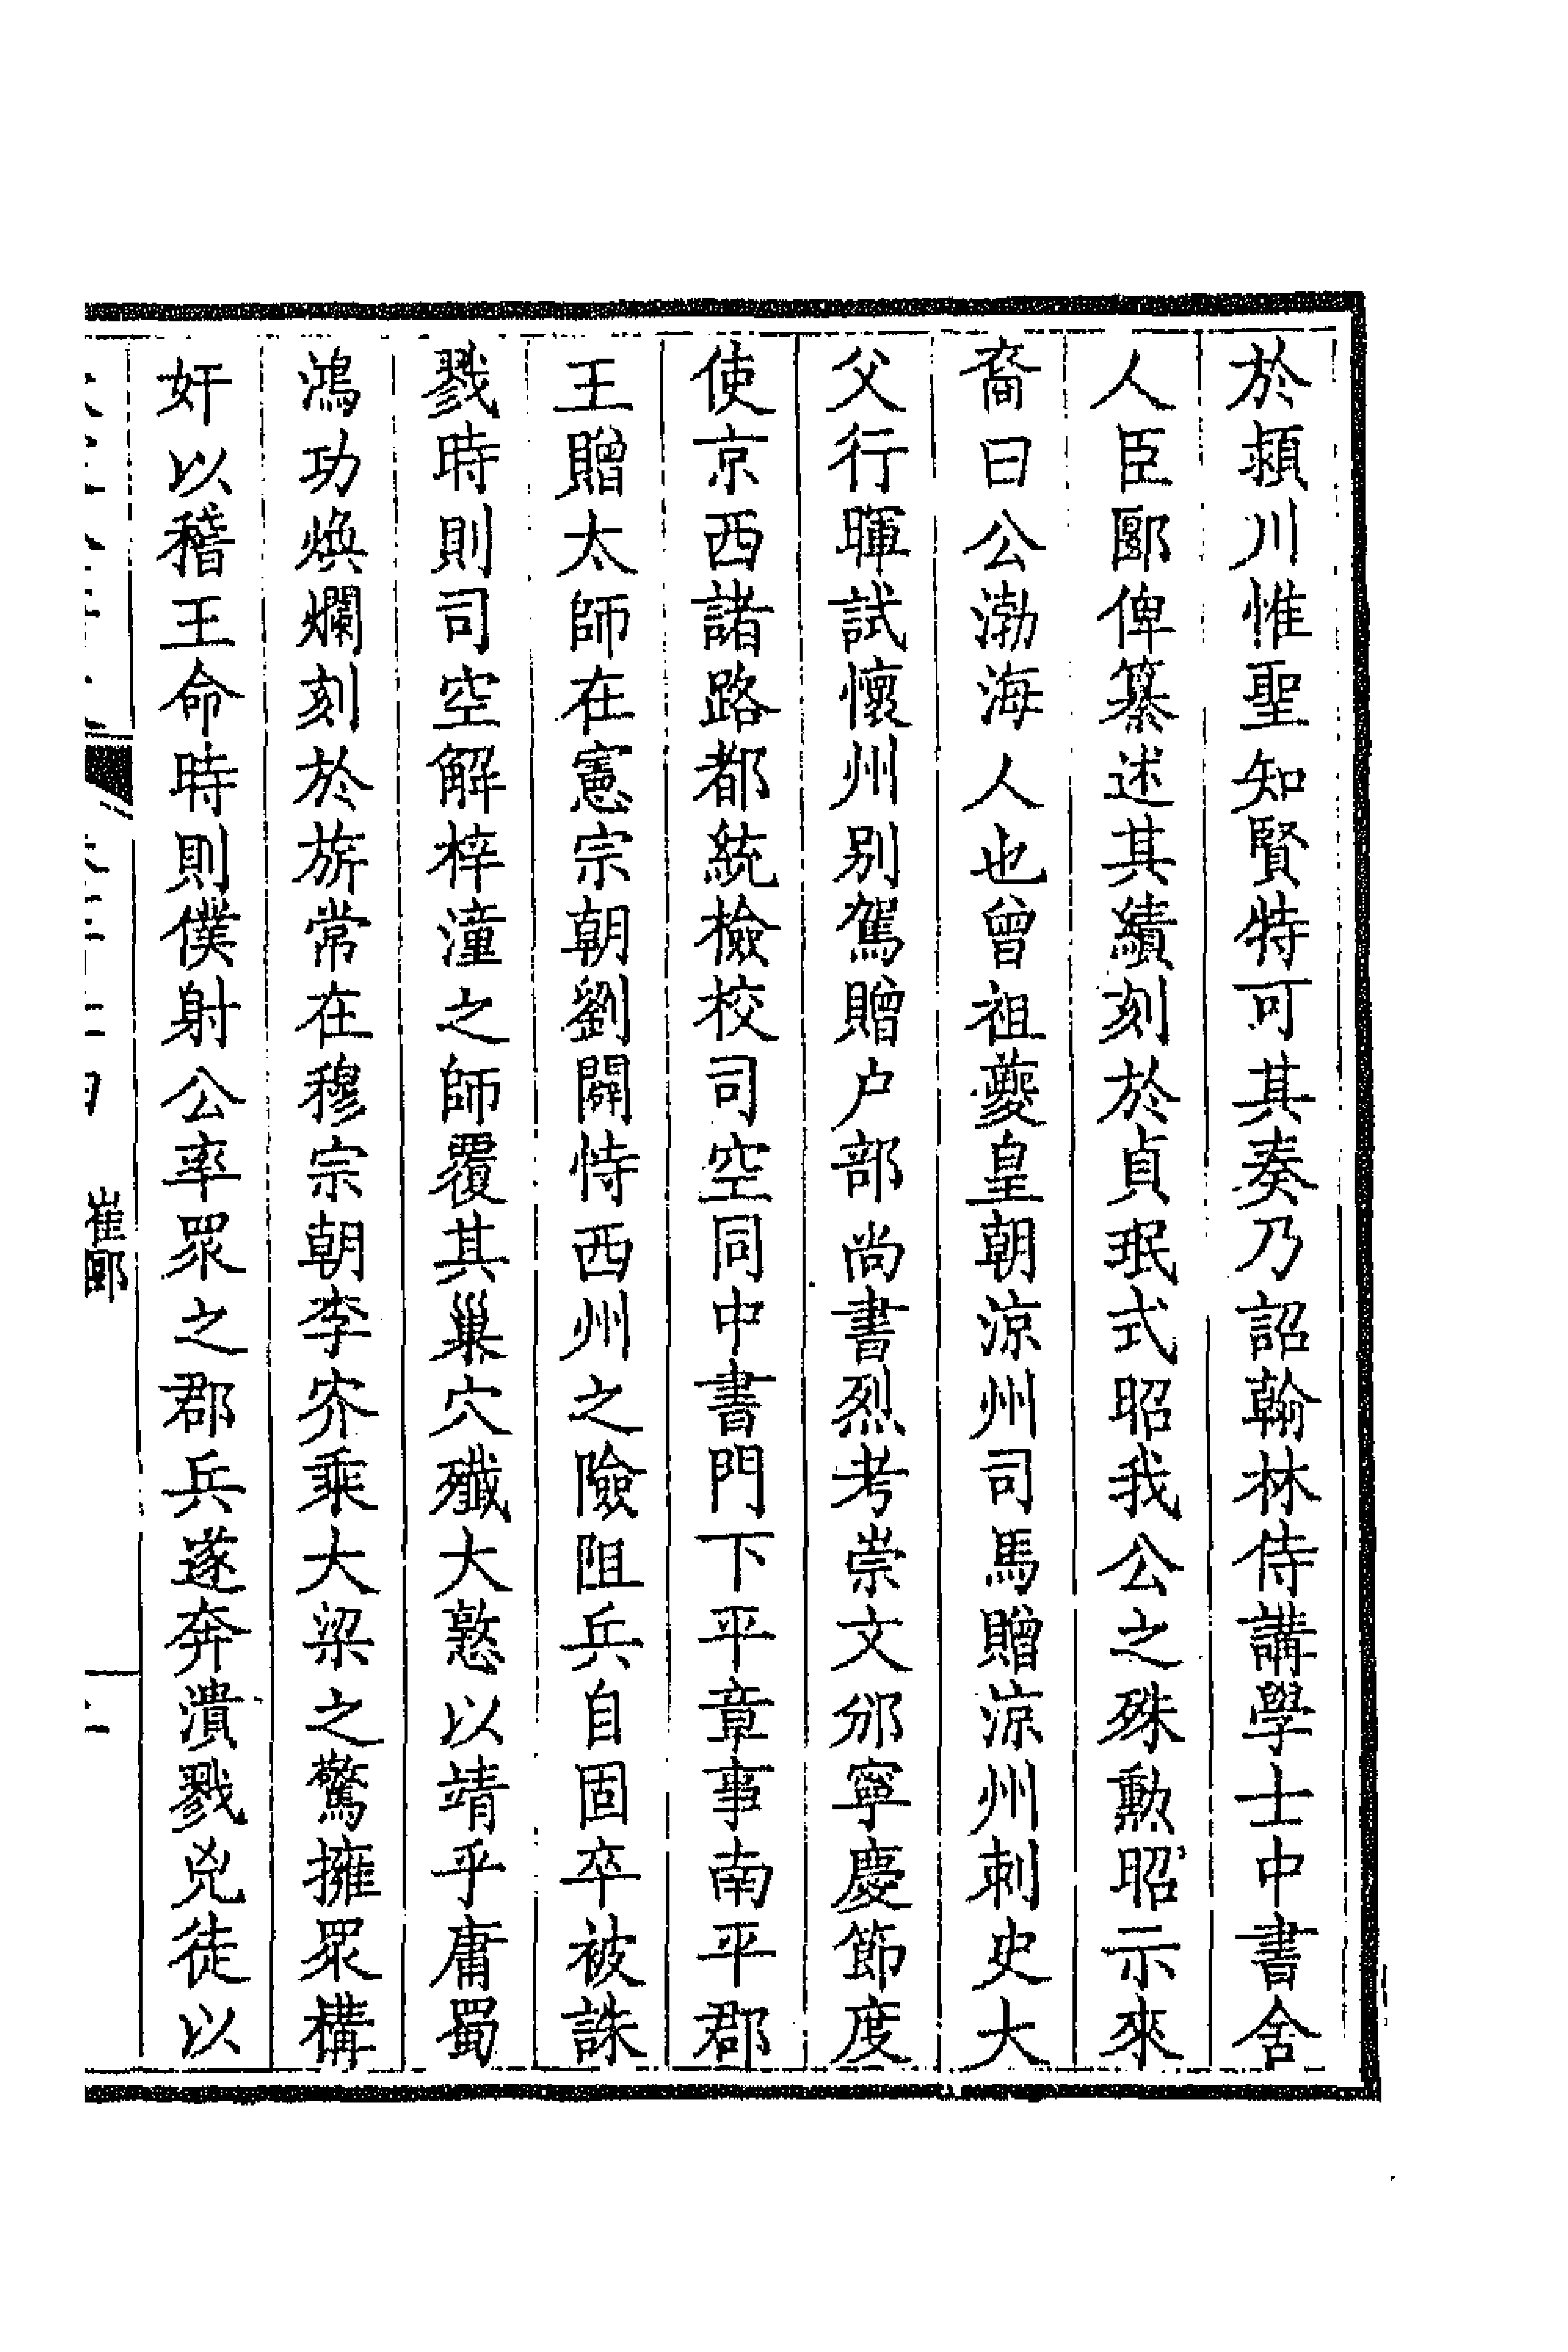 於潁川惟聖知賢特可其奏乃詔翰林侍講學士中書舍
人臣郾俾纂述其績刻於貞珉式昭我公之殊勲昭示來
裔曰公渤海人也曾祖夔皇朝涼州司馬贈涼州刺史大
父行暉試懷州别駕贈户部尚書烈考崇文邠寧慶節度
使京西諸路都統檢校司空同中書門下平章事南平郡
王贈太師在憲宗朝劉闢恃西州之險阻兵自固卒被誅
戮時則司空解梓潼之師覆其巢穴殲大憝以靖乎庸蜀
鴻功煥爛刻於旂常在穆宗朝李㝏乘大梁之驚擁眾構
奸以稽王命時則僕射公率眾之郡兵遂奔潰戮兇徒以
崔郾